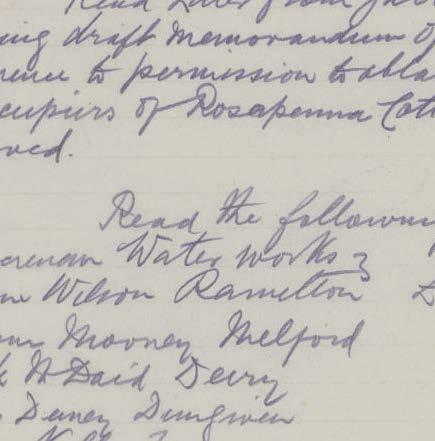 Read Letter from
ing draft Memorandum of
rence to permission to obta
cupiers of Rosapenna Cot
oved.
Read the following
Water works
Wilson Ramelton D
Mooney Melford
k McDaid Derry
Deney Dungiven